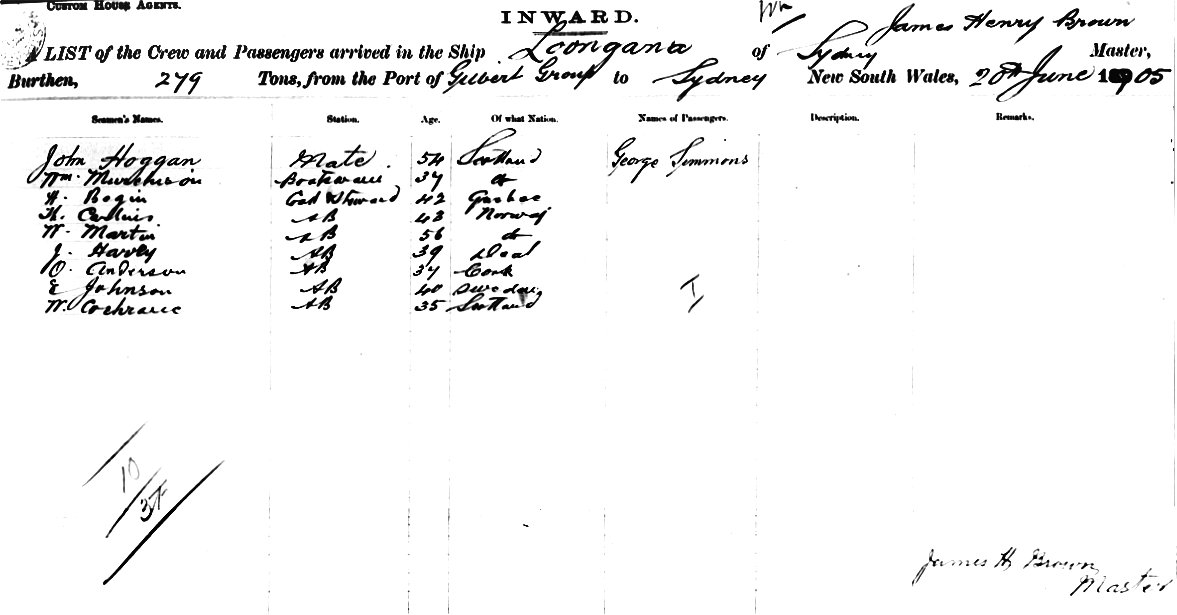 CUSTOM HOUSE AGENTS.
INWARD.
James Henry Brown
A LIST of the Crew and Passengers arrived in the Ship Loongana of Sydney Master,
Burthen, 279 Tons, from the Port of Gilbert Group to Sydney New South Wales, 20th June 1905
Seamen's Names. Station. Age. Of what Nation. Names of Passengers. Description. Remarks.
John Hoggan Mate 54 Scotland George Simmons
Wm. Murchison 37 do
H. Cook & Steward 42 Quebec
AB 43 Norway
W. Martin AB 56 do
J. Harvey AB 39 Deal
O. Anderson AB 37 Cork
E Johnson AB 40 Sweden
W. Cochrane AB 35 Scotland
I
10
37
James H Brown
Master